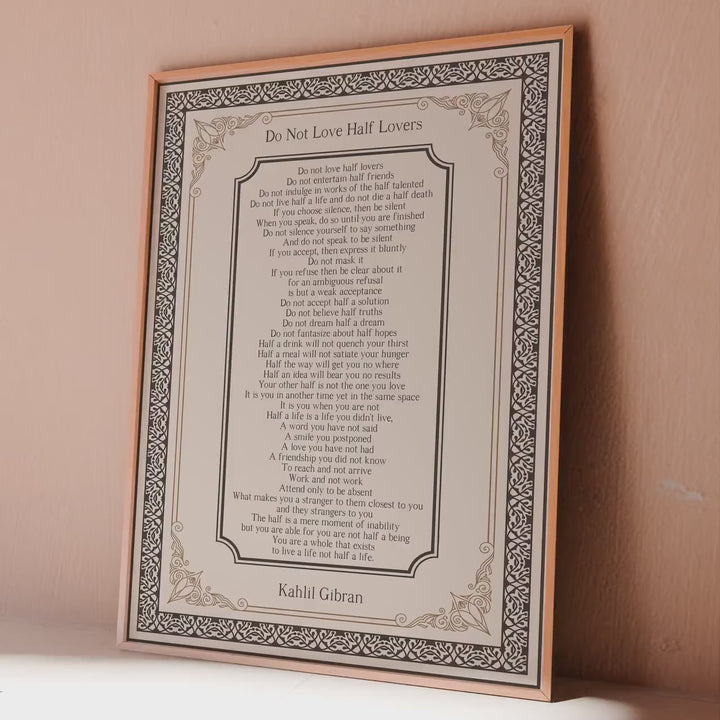 Do Not Love Half Lovers
Do not love half lovers
Do not entertain half friends
Do not indulge in works of the half talented
Do not live half a life and do not die a half death
If you choose silence, then be silent
When you speak, do so until you are finished
Do not silence yourself to say something
And do not speak to be silent
If you accept, then express it bluntly
Do not mask it
If you refuse then be clear about it
for an ambiguous refusal
is but a weak acceptance
Do not accept half a solution
Do not believe half truths
Do not dream half a dream
Do not fantasize about half hopes
Half a drink will not quench your thirst
Half a meal will not satiate your hunger
Half the way will get you no where
Half an idea will bear you no results
Your other half is not the one you love
It is you in another time yet in the same space
It is you when you are not
Half a life is a life you didn't live,
A word you have not said
A smile you postponed
A love you have not had
A friendship you did not know
To reach and not arrive
Work and not work
Attend only to be absent
What makes you a stranger to them closest to you
and they strangers to you
The half is a mere moment of inability
but you are able for you are not half a being
You are a whole that exists
to live a life not half a life.
Kahlil Gibran